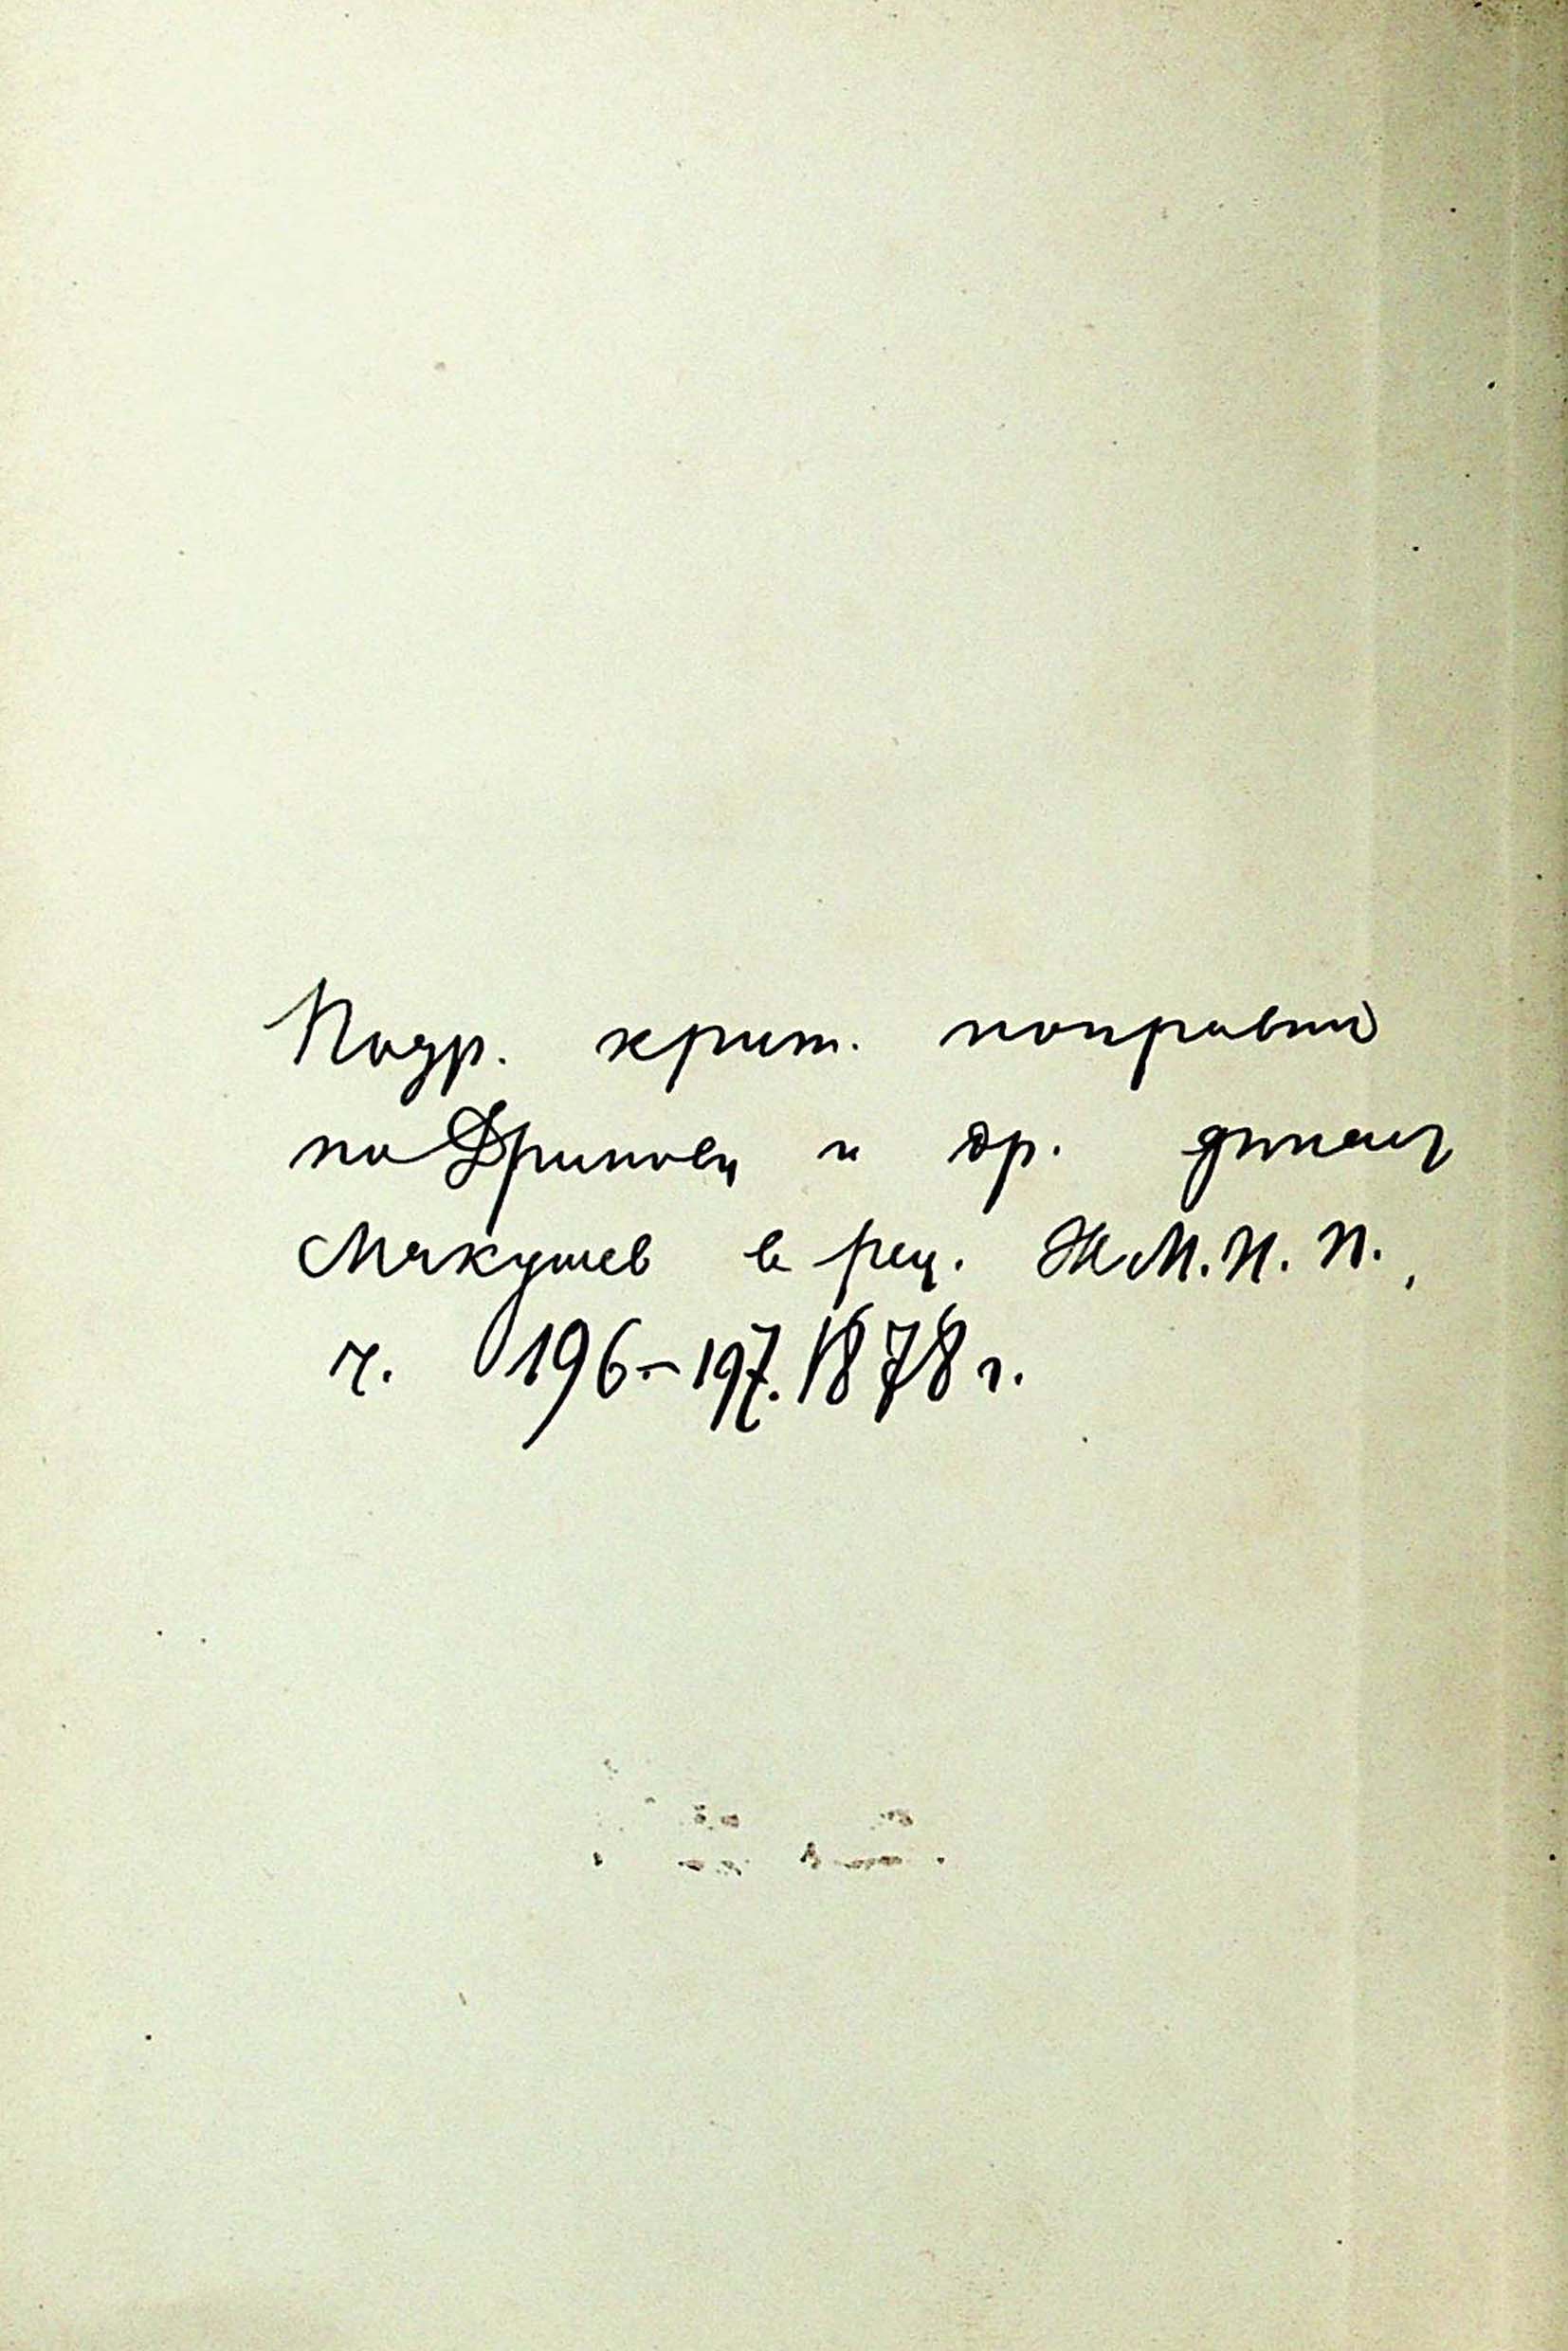 Подр. крит. поправки
по Дринову и др.
Макушев в рец. Ж.М.Н.П.,
ч. 196–197. 1878 г.